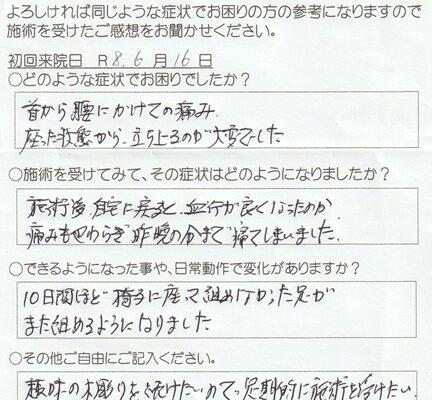 よろしければ同じような症状でお困りの方の参考になりますので
施術を受けたご感想をお聞かせください。
初回来院日 R 8.6月16日
○どのような症状でお困りでしたか?
首から腰にかけての痛み
座った状態から、立ち上るのが大変でした
○施術を受けてみて、その症状はどのようになりましたか?
施術後、自宅に戻ると、血行が良くなったのか
痛みもやわらぎ昨晩の分まで寝てしまいました。
○できるようになった事や、日常動作で変化がありますか?
10日間ほど椅子に座って組めなかった足が
また組めるようになりました
○その他ご自由にご記入ください。
趣味の木彫りを続けたいので、定期的に施術を受けたい。